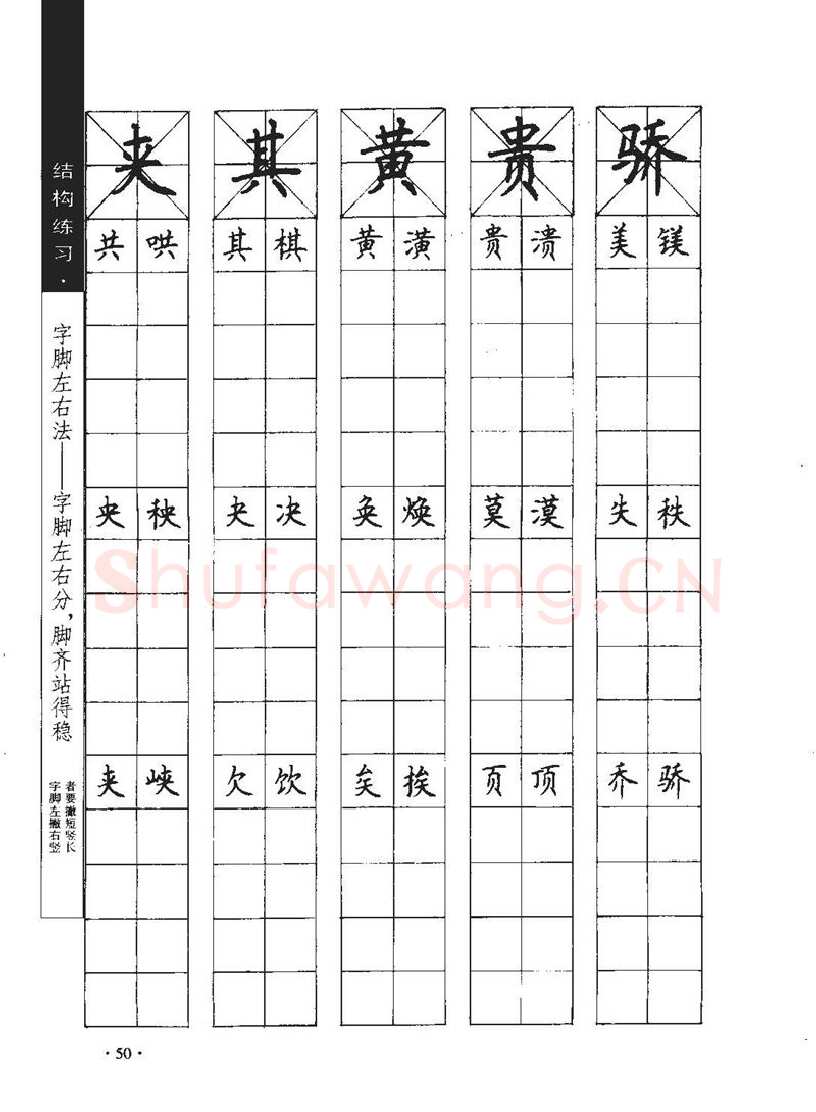 结构练习·
字脚左右法——字脚左右分，脚齐站得稳
字脚左撇右竖
者要撇短竖长
夹 其 黄 贵 骄
共 哄 其 棋 黄 潢 贵 溃 美 镁
央 秧 夬 决 奂 焕 莫 漠 失 秩
夹 峡 欠 饮 矣 挨 页 顶 乔 骄
Shufawang.CN
·50·